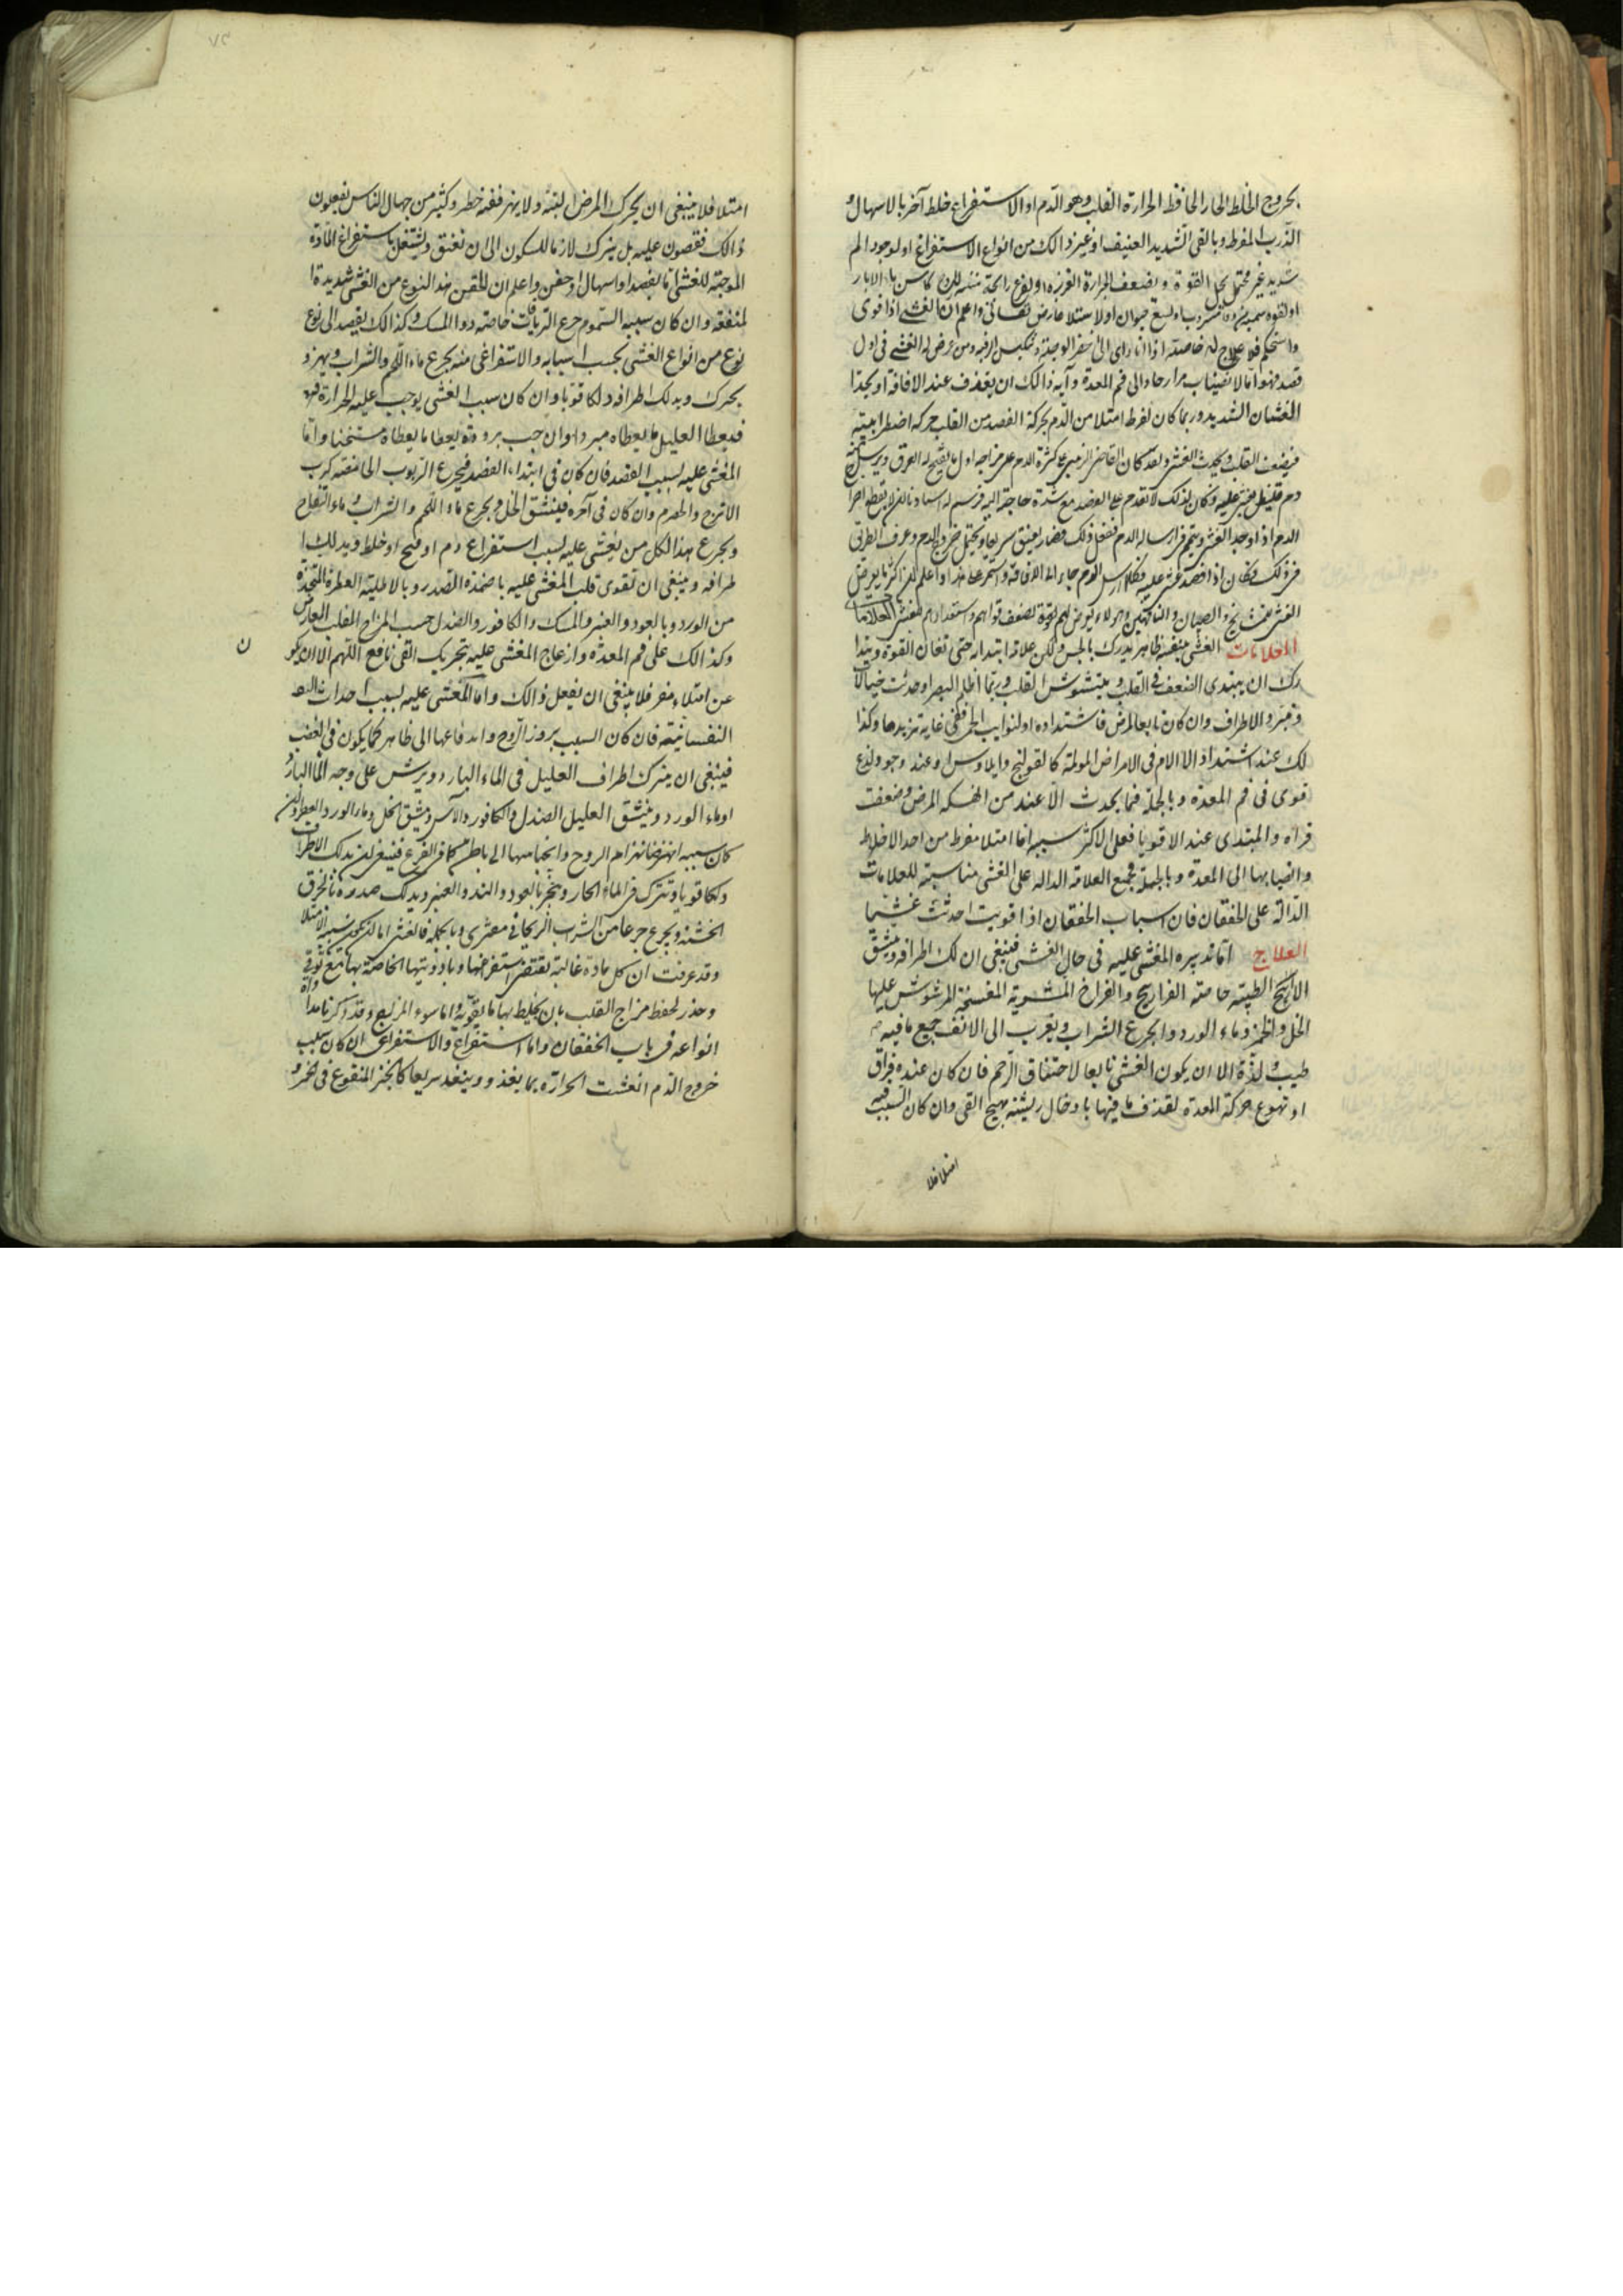 بخروج الخلط الحار الحافظ الحرارة القلب وهو الدم او الاستفراغ خلط آخر بالاسهال و
الذرب المفرط وبالقى الشديد العنيف او غير ذالك من انواع الاستفراغ او لوجود الم
شديد غير محتمل القوة وبضعف الحرارة الغريزة او لوقوع رائحة منتنه الابار
او لقوة سمية مشروب او لسع حيوان او لاستيلا عارض نفسانى واعلم ان الغشى اذا قوى
واستحكم فلا علاج له خاصة اذا راى الوجه الرقبه ومن عرض له الغشى فى اول
فصد فهو اما لانصباب مرار حاد الى فم المعدة وآية ذالك ان يقذف عند الافاقة او يجد ا
الغشيان الشديد وربما كان لفرط امتلا من الدم بحركة الفصد من القلب حركه اضطرابية
فيضعف القلب ويحدث الغشى وقد كان القاضى كثرة الدم على مزاجه اول ما يفتح له العرق ويرسل منه
دم قليل غشى عليه وكان لذلك لا يقدم على الفصد مع شدة حاجته اليه
الدم اذا وجد الغشى ارساله الدم ففعل ذلك فصار يفيق سريعا ويحتمل خروج الدم وعرف الطريق
فى ذلك وكان اذا فصد غشى عليه وكلما ارسل الدم جاء الى الافاقة واستمر على هذا واعلم ان اكثر ما يعرض
الغشى للمشايخ والصبيان والناقهين وهولاء يعرض لهم لضعف قواهم واستعدادهم للغشى العلامات
العلامات الغشى بنفسه ظاهر يدرك بالحس ولكن علامة ابتدائه حتى تعان القوة ويتدا
رك ان يبتدى الضعف فى القلب ويتشوش القلب وربما اظلم البصر او حدثت خيالا
وتبرد الاطراف وان كان تابعا لمرض فاشتداده او لنوايب الحمى ففى غاية تزيدها وكذا
لك عند اشتداد الالام فى الامراض المولمة كالقولنج وايلاوس او عند وجود لذع
قوى فى فم المعدة وبالجملة فما يحدث الا عند من انهكه المرض وضعفت
قواه والمبتدى عند الاقويا فعلى الاكثر سببه اما امتلا مفرط من احد الاخلاط
وانصبابها الى المعدة وبالجملة فجميع العلامة الداله على الغشى مناسبة للعلامات
الدالة على الخفقان فان اسباب الخفقان اذا قويت احدثت غشيا
العلاج اما تدبيره المغشى عليه فى حال الغشى فينبغى ان لك اطرافه ويشق
الارايح الطيبة خاصة الفراريج والفراخ المشوية المفسخة المرشوش عليها
الخل والخمر وماء الورد والجرع الشراب ويقرب الى الانف جميع ما فيه
طيب ولذة الا ان يكون الغشى تابعا لاختناق الرحم فان كان عنده فواق
او تهوع حركة المعدة لقذف ما فيها بادخال ريشة تهيج القى وان كان السبب فيه
امتلا فلا
امتلا فلا ينبغى ان يحرك المرض البتة ولا يهز ففيه خطر وكثير من جهال الناس يفعلون
ذالك فقصون عليه بل يترك لازما للسكون الى ان تفيق ويشتغل باستفراغ المادة
الموجبة للغشى اما بفصد او اسهال او حقن واعلم ان للحقن لهذا النوع من الغشى شديدة ا
لمنفعة وان كان سببه السموم جرع الترياقات خاصة دوا المسك وكذالك يقصد الى نوع
نوع من انواع الغشى بحسب اسبابه والاستفراغى منه يجرع ماء اللحم والشراب ويهز و
يحرك ويدلك اطرافه دلكا قويا وان كان سبب الغشى يوجب عليه الحرارة
فيعطا العليل ما يعطاه مبردا وان حب برودة يعطا ما يعطاه مسخنا واما
المغشى عليه بسبب الفصد فان كان فى ابتداء الفصد فيجرع الربوب الحامضة كرب
الاترج والحصرم وان كان فى آخره فينشق الخل ويجرع ماء اللحم والشراب وماء التفاح
ويجرع هذا لكل من يغشى عليه بسبب استفراغ دم او قيح او خلط ويدلك ا
طرافه وينبغى ان تقوى قلب المغشى عليه باضمدة الصدر وبالاطلية العطرة المتخذة
من الورد وبالعود والعنبر والمسك والكافور والصندل حسب المزاج القلب العارض
وكذالك على فم المعدة وازعاج المغشى عليه بتحريك القى نافع اللهم الا ان يكو
ن
عن امتلاء مفرط فلا ينبغى ان يفعل ذالك واما المغشى عليه بسبب احداث
النفسانية فان كان السبب بروز الروح واندفاعها الى ظاهر كما يكون فى الغضب
فينبغى ان يترك اطراف العليل فى الماء البارد ويرش على وجه الما البارد
او ماء الورد وينشق العليل الصندل والكافور والآس ويشق الخل وماء الورد العطر وان
كان سببه انهزام الروح وانجباسها الى باطن كما فى الفزع فينبغى ان يدلك الاطراف
دلكا قويا وتترك فى الماء الحار ويبخر بالعود والند والعنبر ويدلك صدره بالخرق
الخشنة ويجرع جرعا من الشراب الريحانى وبالجملة فالغشى اما ان يكون سببه الامتلا
وقد عرفت ان كل مادة غالبة يقتضى استفراغها وبادويتها الخاصة بها مع توقى
وحذر لحفظ مزاج القلب بان يخلط بها ما يقويه واما سوء المزاج وقد ذكرنا مداواة
انواعه فى باب الخفقان واما استفراغ والاستفراغى ان كان بسبب
خروج الدم انعشت الحرارة بما يغذو وينفذ سريعا كالخبز المنقوع فى الخمر و